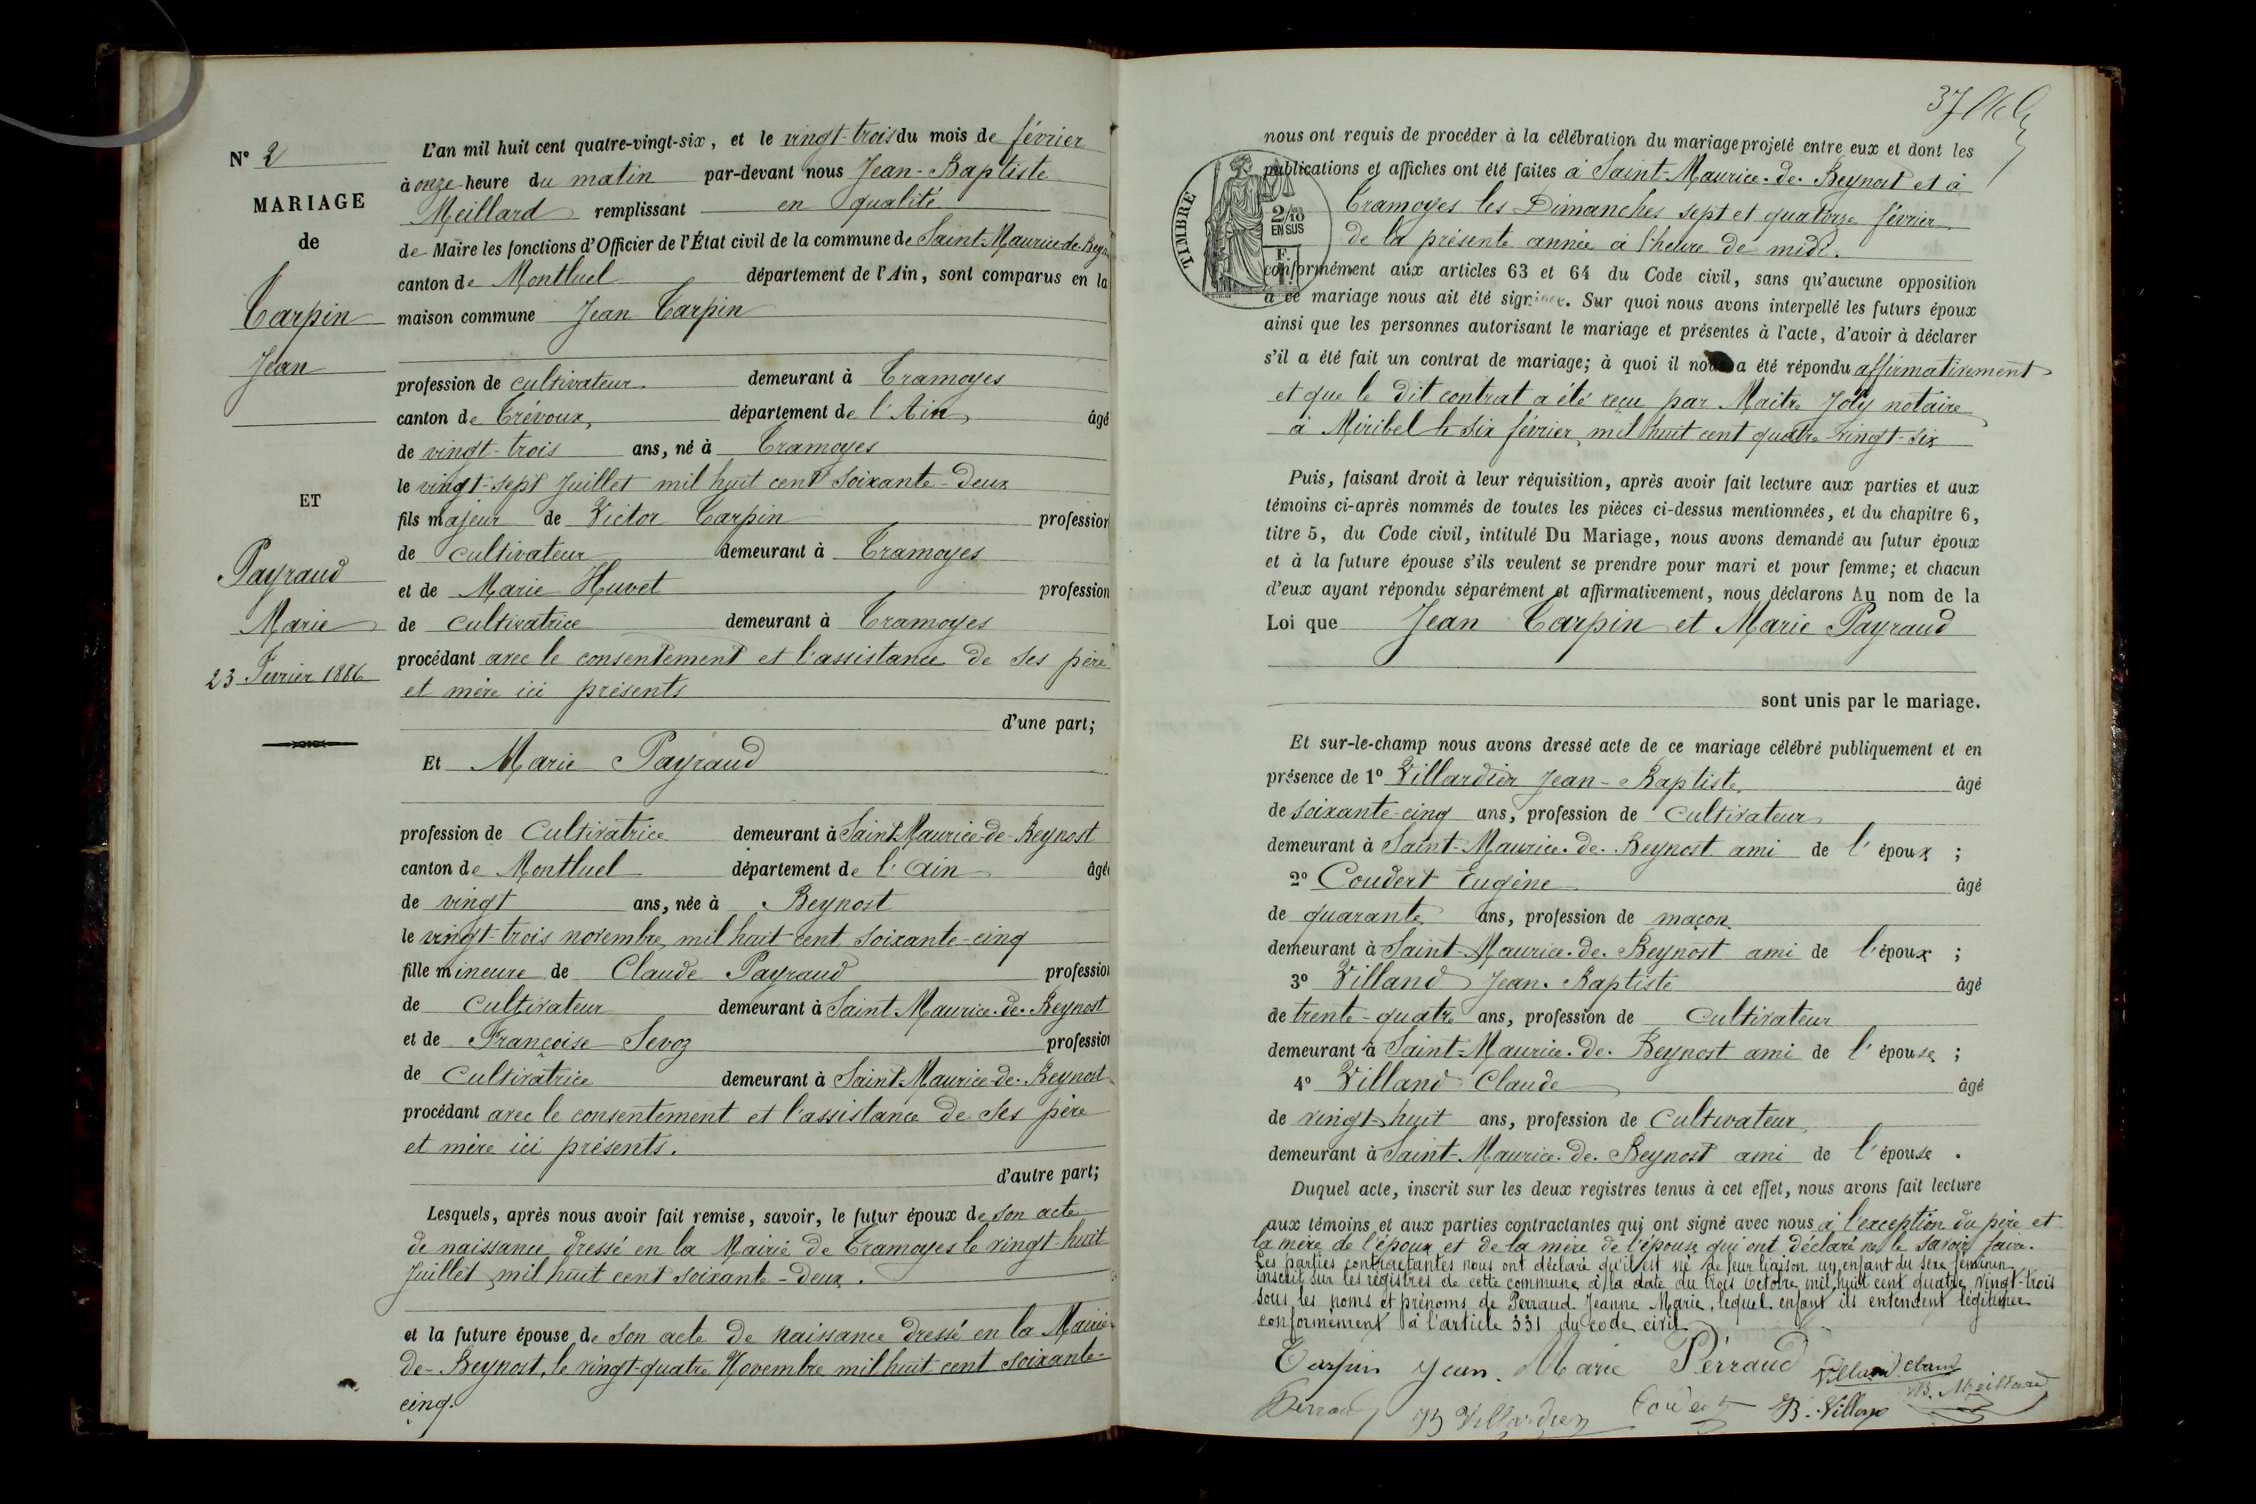 N° 2
MARIAGE
de
Carpin
Jean
ET
Payraud
Marie
23 Fevrier 1886
L'an mil huit cent quatre-vingt-six, et le vingt-trois du mois de février
à onze heure du matin par-devant nous Jean-Baptiste
Meillard remplissant en qualité
de Maire les fonctions d'Officier de l'État civil de la commune de Saint-Maurice-de-Beyn
canton de Montluel département de l'Ain, sont comparus en la
maison commune Jean Carpin
profession de cultivateur demeurant à Tramoyes
canton de Trévoux, département de l'Ain, âgé
de vingt-trois ans, né à Tramoyes
le vingt-sept Juillet mil huit cent soixante-deux
fils majeur de Victor Carpin profession
de cultivateur demeurant à Tramoyes
et de Marie Huvet profession
de cultivatrice demeurant à Tramoyes
procédant avec le consentement et l'assistance de ses père
et mère ici présents
d'une part;
Et Marie Payraud
profession de Cultivatrice demeurant à Saint-Maurice-de-Beynost
canton de Montluel département de l'Ain âgé
de vingt ans, née à Beynost
le vingt-trois novembre mil huit cent soixante-cinq
fille mineure de Claude Payraud profession
de Cultivateur demeurant à Saint-Maurice-de-Beynost
et de Françoise Sevoz profession
de Cultivatrice demeurant à Saint-Maurice-de-Beynost
procédant avec le consentement et l'assistance de ses père
et mère ici présents.
d'autre part;
Lesquels, après nous avoir fait remise, savoir, le futur époux de son acte
de naissance dressé en la Mairie de Tramoyes le vingt-huit
Juillet mil huit cent soixante-deux.
et la future épouse de son acte de naissance dressé en la Mairie
de Beynost, le vingt-quatre Novembre mil huit cent soixante-
cinq.
37
nous ont requis de procéder à la célébration du mariage projeté entre eux et dont les
publications et affiches ont été faites à Saint-Maurice-de-Beynost et à
Tramoyes les Dimanches sept et quatorze février
de la présente année à l'heure de midi.
TIMBRE
2/10 EN SUS
F. 1.
conformément aux articles 63 et 64 du Code civil, sans qu'aucune opposition
à ce mariage nous ait été signifiée. Sur quoi nous avons interpellé les futurs époux
ainsi que les personnes autorisant le mariage et présentes à l'acte, d'avoir à déclarer
s'il a été fait un contrat de mariage; à quoi il nous a été répondu affirmativement
et que le dit contrat a été reçu par Maitre Joly notaire
à Miribel le six février mil huit cent quatre-vingt-six
Puis, faisant droit à leur réquisition, après avoir fait lecture aux parties et aux
témoins ci-après nommés de toutes les pièces ci-dessus mentionnées, et du chapitre 6,
titre 5, du Code civil, intitulé Du Mariage, nous avons demandé au futur époux
et à la future épouse s'ils veulent se prendre pour mari et pour femme; et chacun
d'eux ayant répondu séparément et affirmativement, nous déclarons Au nom de la
Loi que Jean Carpin et Marie Payraud
sont unis par le mariage.
Et sur-le-champ nous avons dressé acte de ce mariage célébré publiquement et en
présence de 1° Villardier Jean-Baptiste âgé
de soixante-cinq ans, profession de Cultivateur
demeurant à Saint-Maurice-de-Beynost ami de l'époux ;
2° Coudert Eugène âgé
de quarante ans, profession de maçon
demeurant à Saint-Maurice-de-Beynost ami de l'époux ;
3° Villand Jean-Baptiste âgé
de trente-quatre ans, profession de Cultivateur
demeurant à Saint-Maurice-de-Beynost ami de l'épouse ;
4° Villand Claude âgé
de vingt-huit ans, profession de Cultivateur
demeurant à Saint-Maurice-de-Beynost ami de l'épouse .
Duquel acte, inscrit sur les deux registres tenus à cet effet, nous avons fait lecture
aux témoins et aux parties contractantes qui ont signé avec nous à l'exception du père et
la mère de l'époux et de la mère de l'épouse qui ont déclaré ne le savoir faire.
Les parties contractantes nous ont déclaré qu'il est né de leur liaison un enfant du sexe féminin
inscrit sur les registres de cette commune à la date du trois Octobre mil huit cent quatre vingt-trois
sous les noms et prénoms de Perraud Jeanne Marie, lequel enfant ils entendent légitimer
conformément à l'article 331 du code civil
Carpin Jean Marie Perraud Villand Claude
Perraud JB Villardier Coudert JB. Villand JB. Meillard